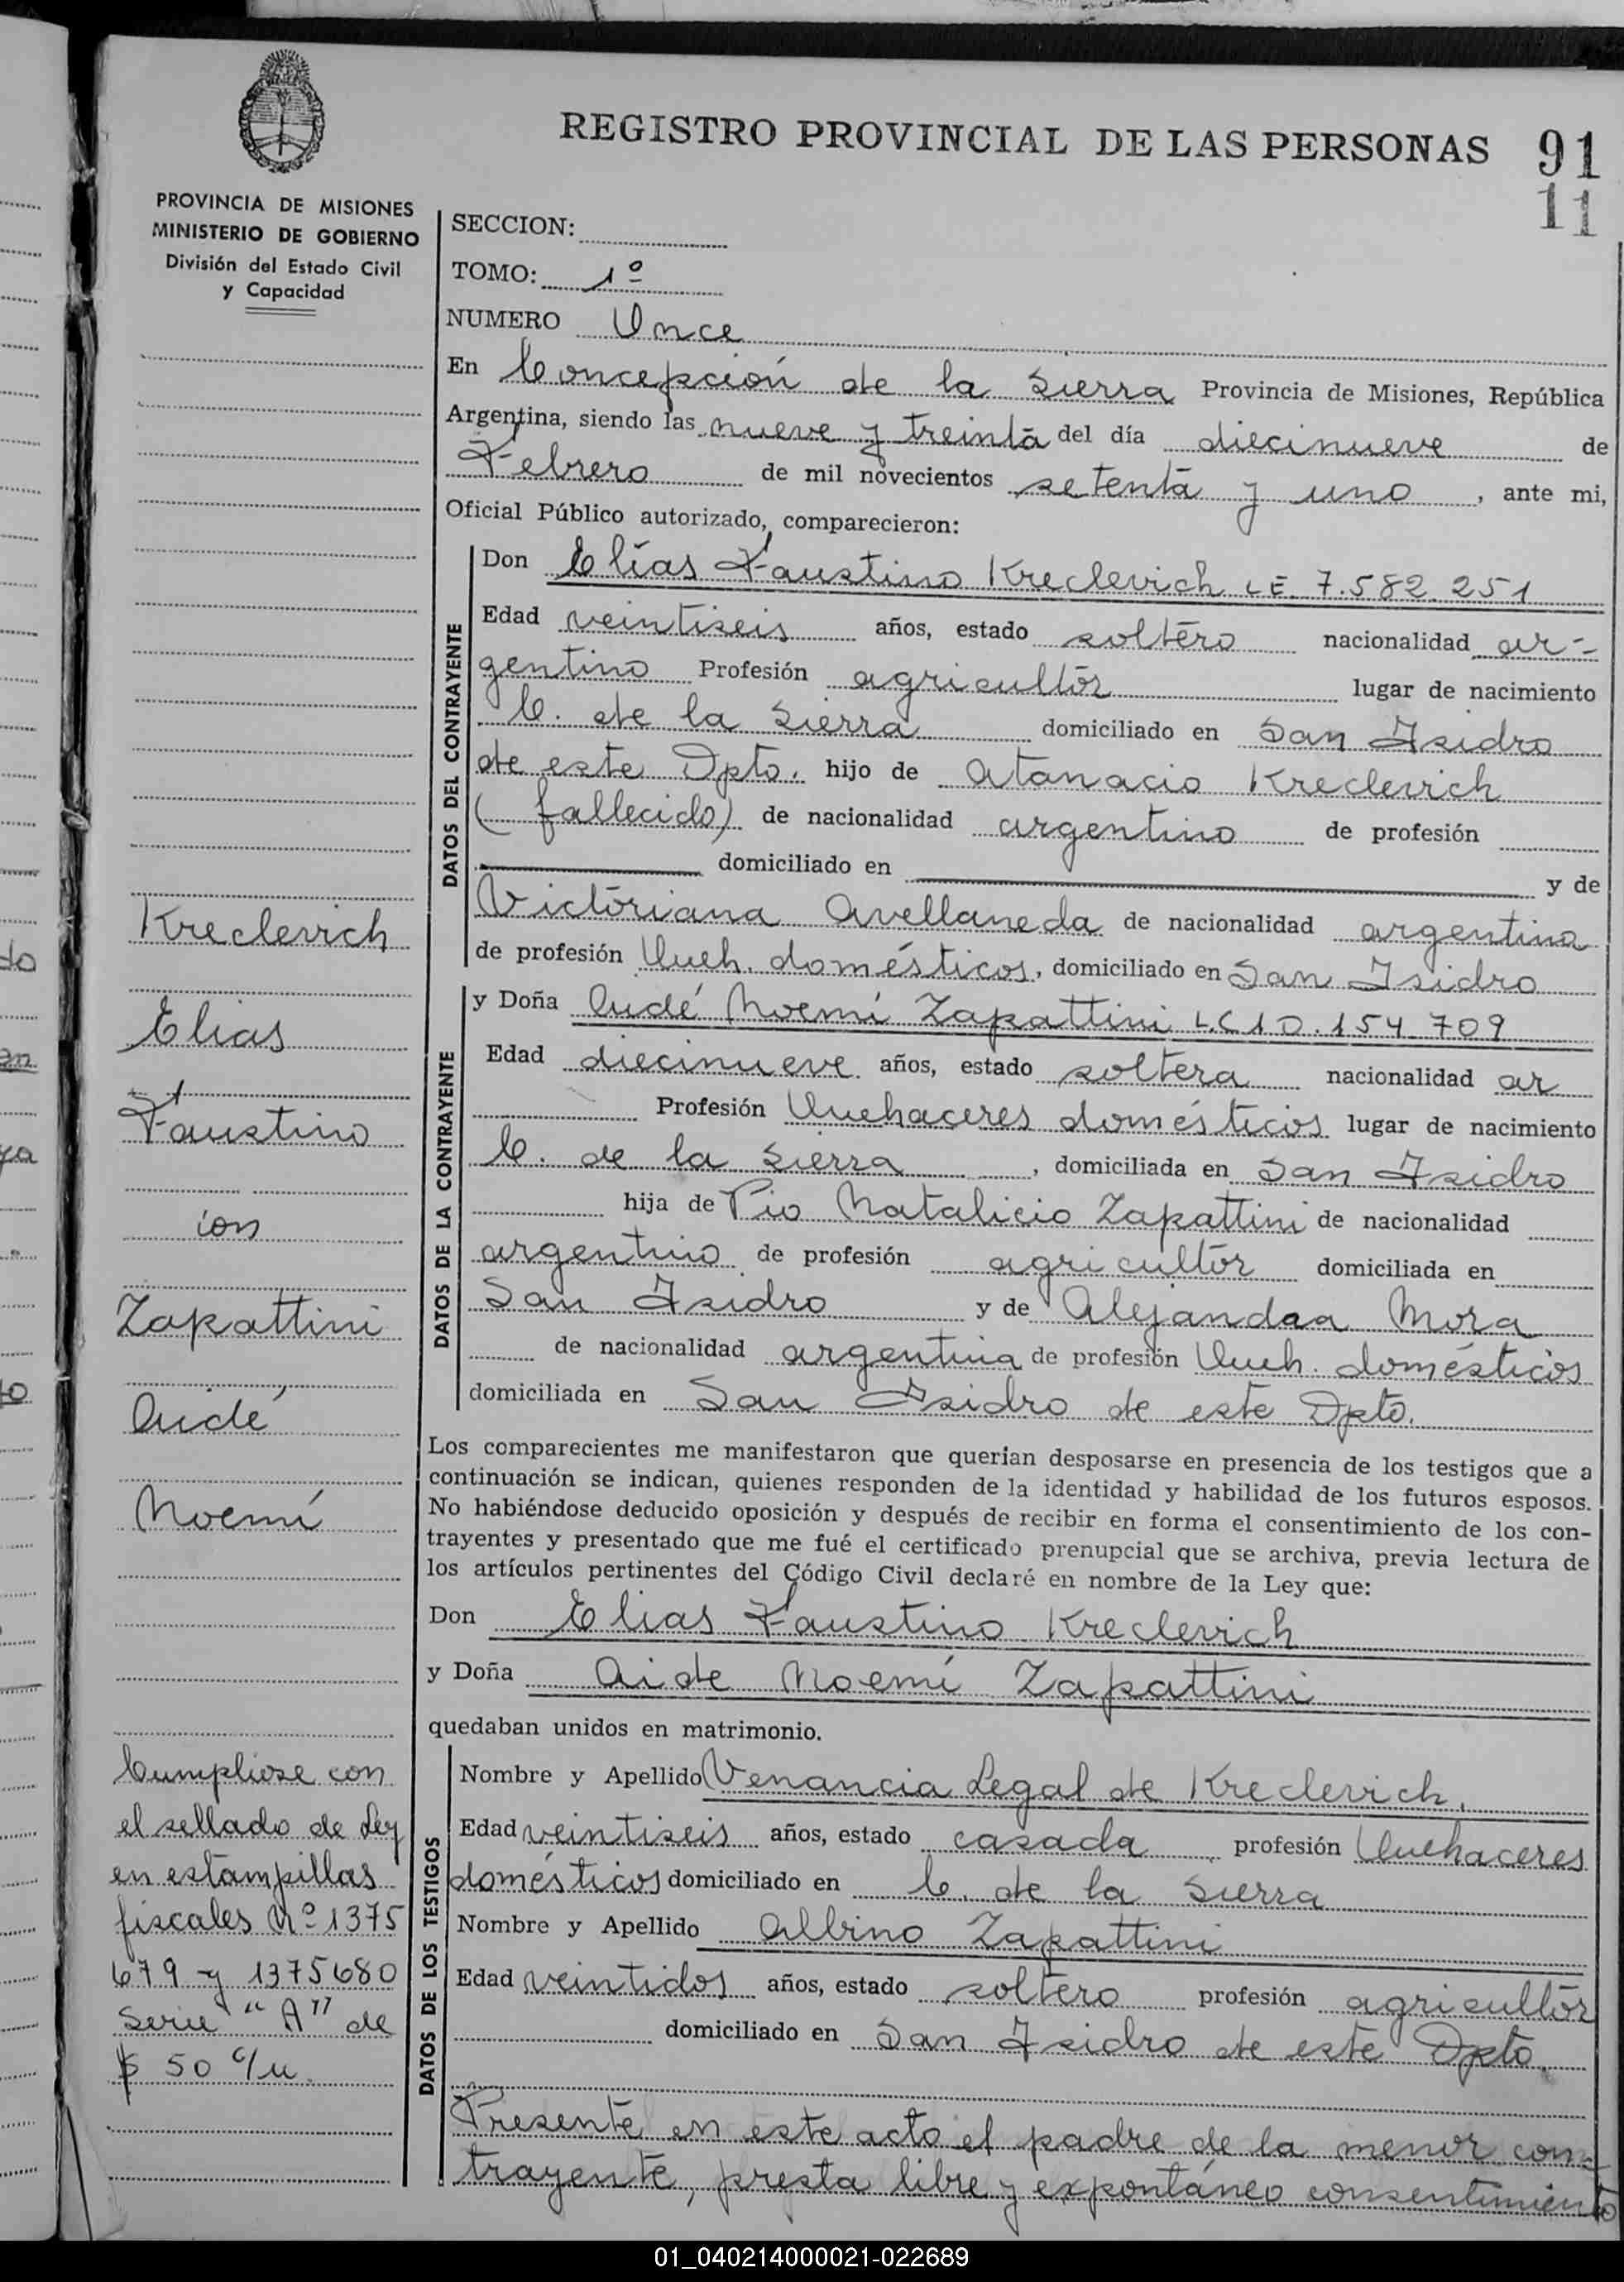 REGISTRO PROVINCIAL DE LAS PERSONAS 91
11
PROVINCIA DE MISIONES
MINISTERIO DE GOBIERNO
División del Estado Civil
y Capacidad
SECCION:
TOMO: 1º
NUMERO Once
En Concepción de la Sierra Provincia de Misiones, República
Argentina, siendo las nueve y treinta del día diecinueve de
Febrero de mil novecientos setenta y uno, ante mi,
Oficial Público autorizado, comparecieron:
DATOS DEL CONTRAYENTE
Don Elías Faustino Kreclevich L E. 7.582.251
Edad veintiseis años, estado soltero nacionalidad ar-
gentino Profesión agricultor lugar de nacimiento
C. de la Sierra domiciliado en San Isidro
de este Dpto. hijo de Atanacio Kreclevich
(fallecido) de nacionalidad argentino de profesión
domiciliado en y de
Victoriana Avellaneda de nacionalidad argentina
de profesión Queh. domésticos, domiciliado en San Isidro
DATOS DE LA CONTRAYENTE
y Doña Aidé Noemí Zapattini L.C 10.154.709
Edad diecinueve años, estado soltera nacionalidad ar
Profesión Quehaceres domésticos lugar de nacimiento
C. de la Sierra, domiciliada en San Isidro
hija de Pio Natalicio Zapattini de nacionalidad
argentino de profesión agricultor domiciliada en
San Isidro y de Alejandra Mora
de nacionalidad argentina de profesión Queh. domésticos
domiciliada en San Isidro de este Dpto.
Los comparecientes me manifestaron que querían desposarse en presencia de los testigos que a
continuación se indican, quienes responden de la identidad y habilidad de los futuros esposos.
No habiéndose deducido oposición y después de recibir en forma el consentimiento de los con-
trayentes y presentado que me fué el certificado prenupcial que se archiva, previa lectura de
los artículos pertinentes del Código Civil declaré en nombre de la Ley que:
Don Elias Faustino Kreclevich
y Doña Aide Noemí Zapattini
quedaban unidos en matrimonio.
DATOS DE LOS TESTIGOS
Nombre y Apellido Venancia Legal de Kreclevich.
Edad veintiseis años, estado casada, profesión Quehaceres
domésticos domiciliado en C. de la Sierra
Nombre y Apellido Albino Zapattini
Edad veintidos años, estado soltero profesión agricultor
domiciliado en San Isidro de este Dpto.
Presente en este acto el padre de la menor con-
trayente, presta libre y expontáneo consentimiento
Kreclevich
Elias
Faustino
con
Zapattini
Aidé
Noemí
Cumpliose con
el sellado de Ley
en estampillas
fiscales Nº 1375
679 y 1375680
Serie "A" de
$ 50 c/u.
01_040214000021-022689